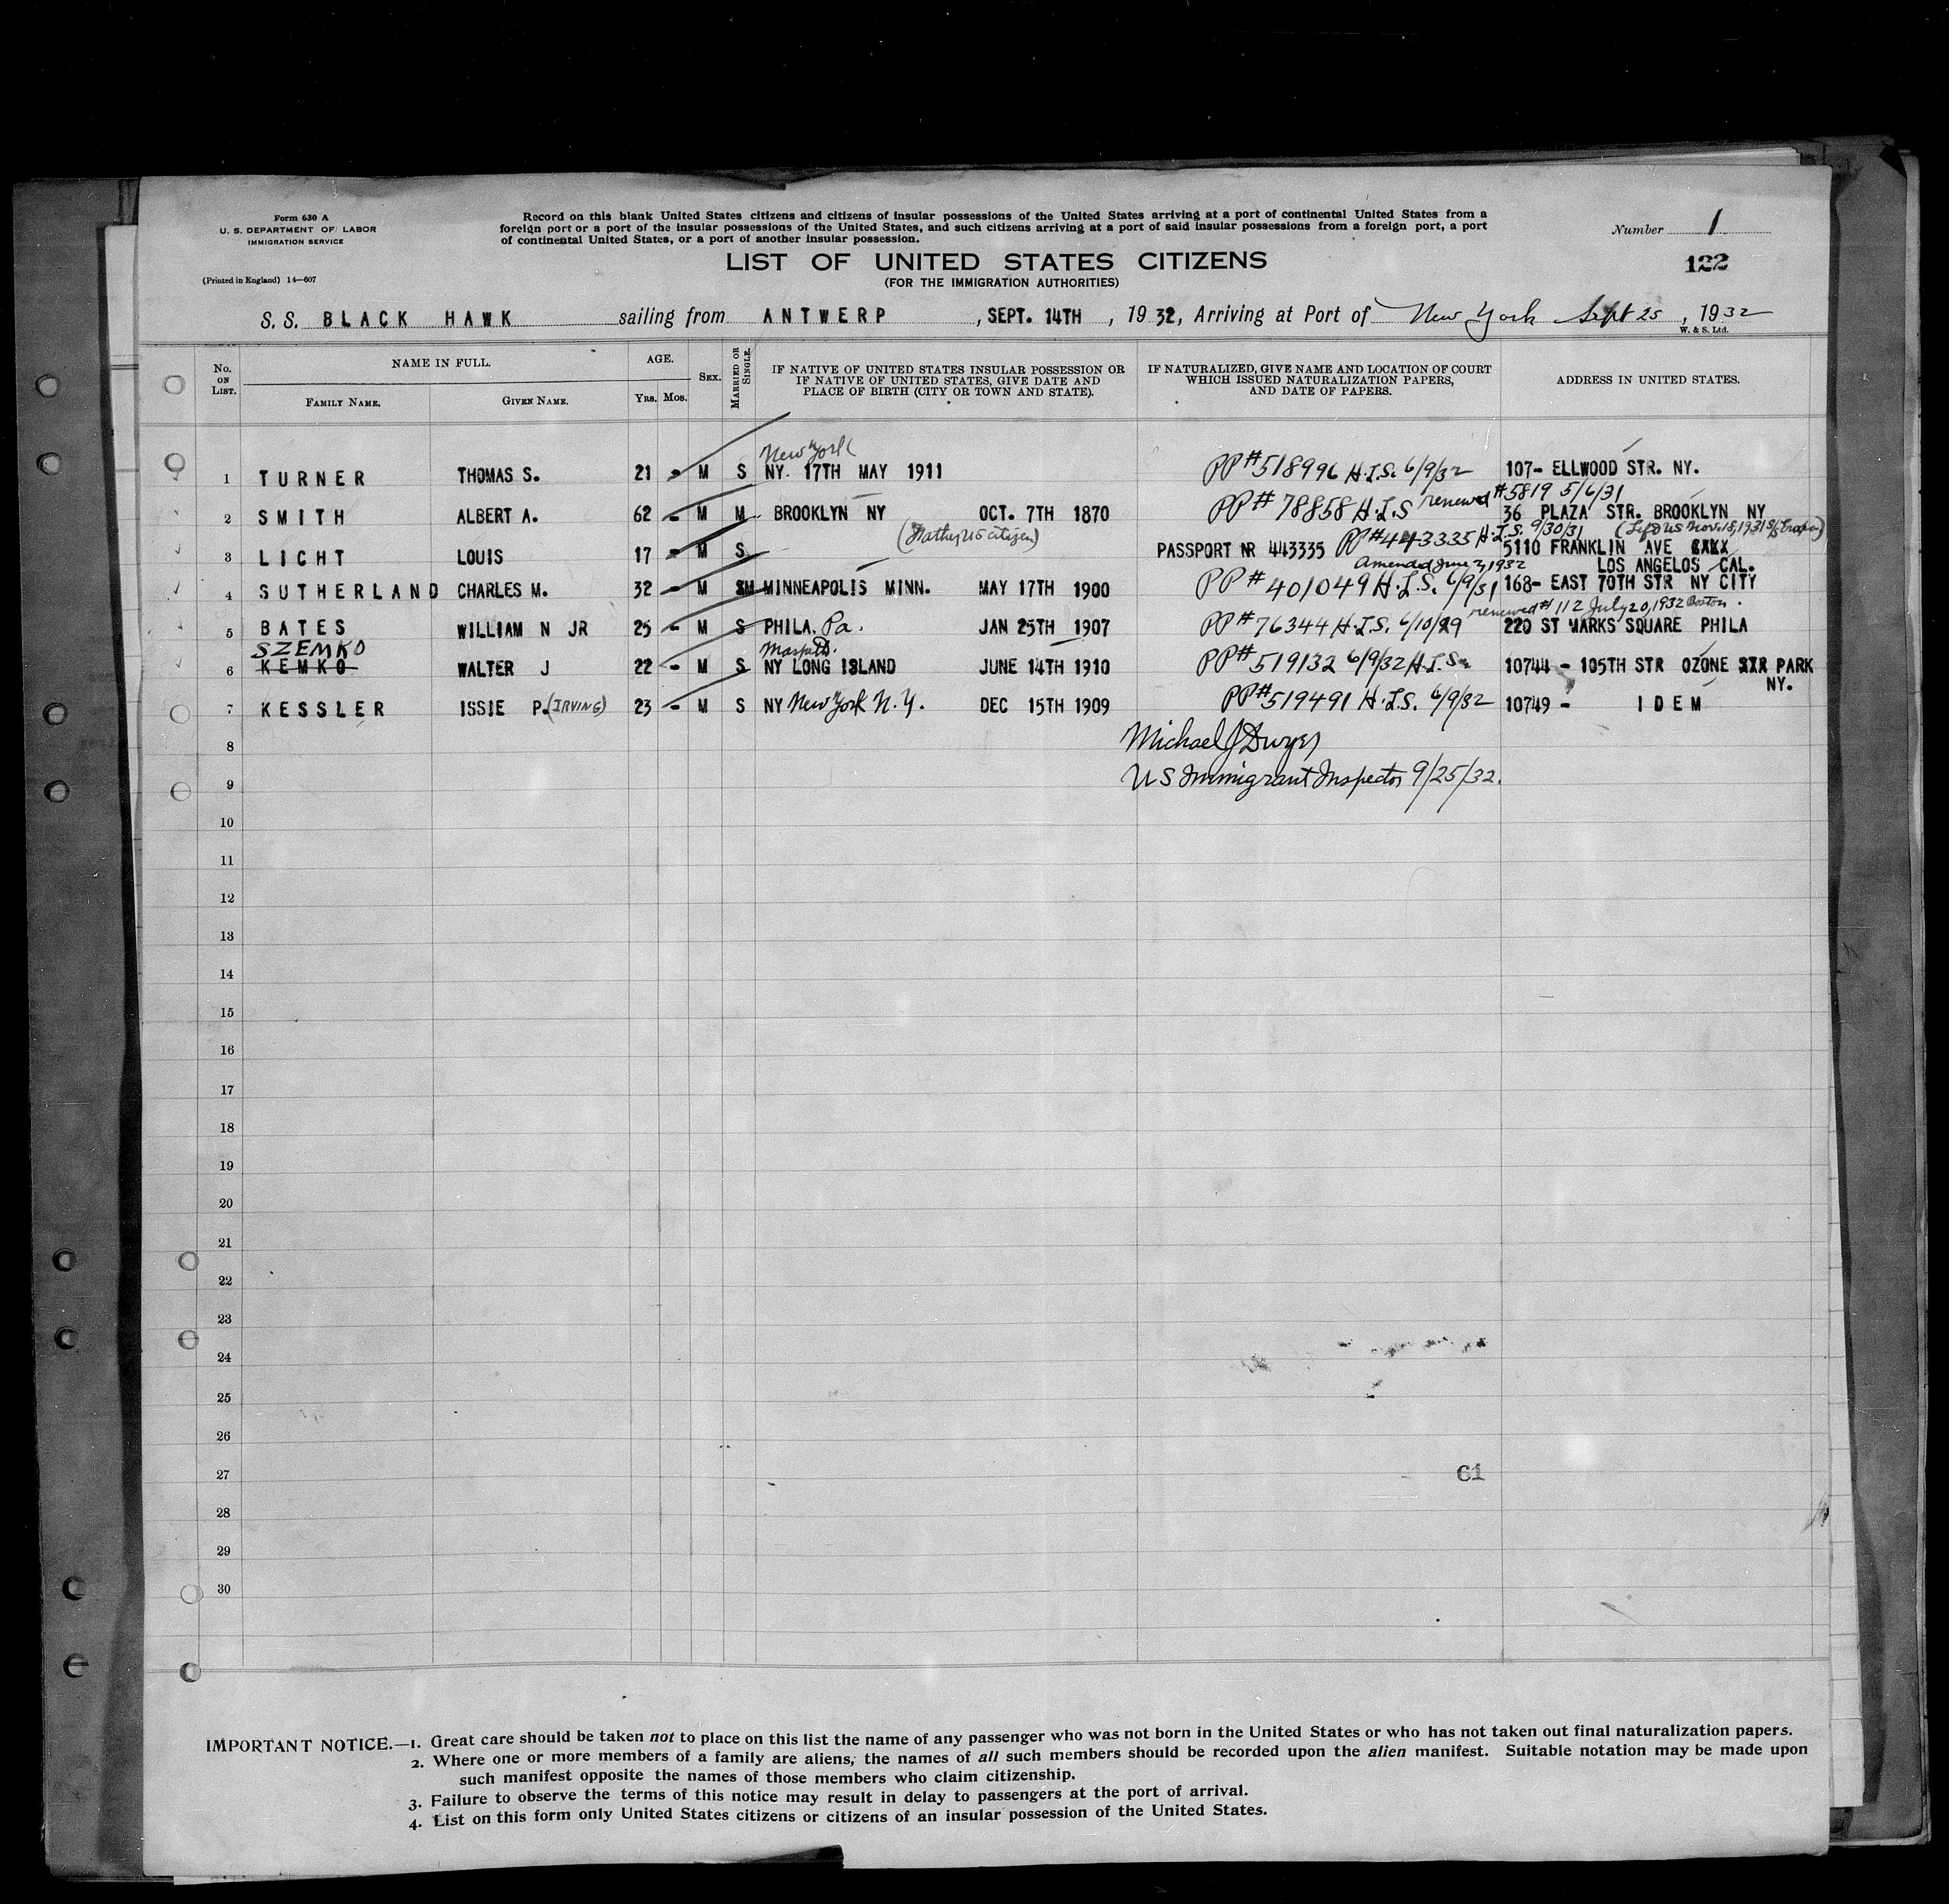 Form 630 A
U. S. DEPARTMENT OF LABOR
IMMIGRATION SERVICE
(Printed in England) 14—607
Record on this blank United States citizens and citizens of insular possessions of the United States arriving at a port of continental United States from a
foreign port or a port of the insular possessions of the United States, and such citizens arriving at a port of said insular possessions from a foreign port, a port
of continental United States, or a port of another insular possession.
Number 1
122
LIST OF UNITED STATES CITIZENS
(FOR THE IMMIGRATION AUTHORITIES)
S. S. BLACK HAWK sailing from ANTWERP, SEPT. 14TH, 1932, Arriving at Port of New York Sept 25, 1932
W. & S. Ltd.
No. ON LIST.
NAME IN FULL.
FAMILY NAME.
GIVEN NAME.
AGE.
Yrs. Mos.
SEX.
MARRIED OR SINGLE.
IF NATIVE OF UNITED STATES INSULAR POSSESSION OR
IF NATIVE OF UNITED STATES, GIVE DATE AND
PLACE OF BIRTH (CITY OR TOWN AND STATE).
IF NATURALIZED, GIVE NAME AND LOCATION OF COURT
WHICH ISSUED NATURALIZATION PAPERS,
AND DATE OF PAPERS.
ADDRESS IN UNITED STATES.
New York
1 TURNER THOMAS S. 21 - M S NY. 17TH MAY 1911 PP# 518996 H.L.S. 6/9/32 107- ELLWOOD STR. NY.
renewed #5819 5/6/31
2 SMITH ALBERT A. 62 - M M BROOKLYN NY OCT. 7TH 1870 PP# 78858 H.L.S 36 PLAZA STR. BROOKLYN NY
(Father US citizen) (Left US Nov. 18, 1931
3 LICHT LOUIS 17 - M S PASSPORT NR 443335 PP#443335 H.L.S. 9/30/31 5110 FRANKLIN AVE
Amended June 7, 1932 LOS ANGELOS CAL.
4 SUTHERLAND CHARLES M. 32 - M M MINNEAPOLIS MINN. MAY 17TH 1900 PP# 401049 H.L.S. 6/9/31 168- EAST 70TH STR NY CITY
renewed #112 July 20, 1932 Boston.
5 BATES WILLIAM N JR 25 - M S PHILA. Pa. JAN 25TH 1907 PP# 76344 H.L.S. 6/10/29 220 ST MARKS SQUARE PHILA
SZEMKO Maspeth.
6 KEMKO WALTER J 22 - M S NY LONG ISLAND JUNE 14TH 1910 PP# 519132 6/9/32 H.L.S. 10744 - 105TH STR OZONE PARK
NY.
7 KESSLER ISSIE P. (IRVING) 23 - M S NY New York N.Y. DEC 15TH 1909 PP# 519491 H.L.S. 6/9/32 10749 - IDEM
8 Michael J Dwyer
9 US Immigrant Inspector 9/25/32.
10
11
12
13
14
15
16
17
18
19
20
21
22
23
24
25
26
27 61
28
29
30
IMPORTANT NOTICE.—1. Great care should be taken not to place on this list the name of any passenger who was not born in the United States or who has not taken out final naturalization papers.
2. Where one or more members of a family are aliens, the names of all such members should be recorded upon the alien manifest. Suitable notation may be made upon
such manifest opposite the names of those members who claim citizenship.
3. Failure to observe the terms of this notice may result in delay to passengers at the port of arrival.
4. List on this form only United States citizens or citizens of an insular possession of the United States.